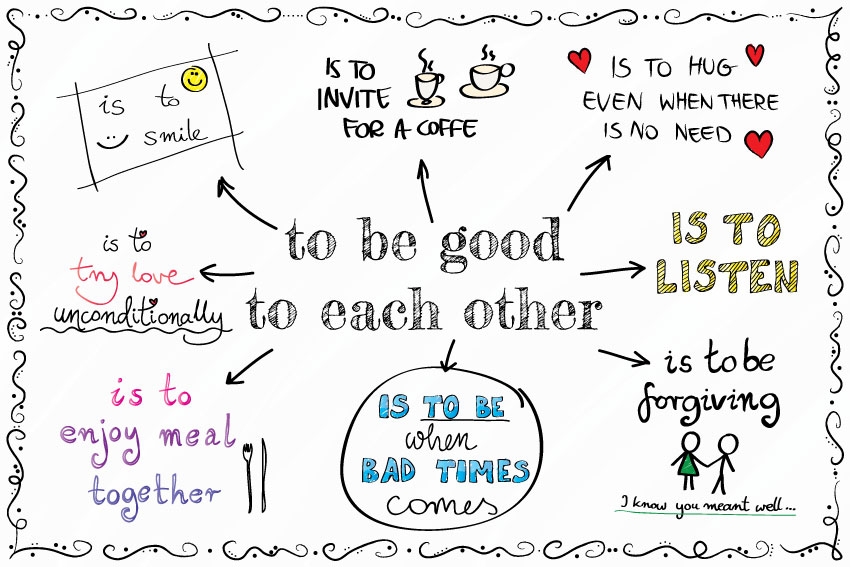 is to
smile
IS TO
INVITE
FOR A COFFE
IS TO HUG
EVEN WHEN THERE
IS NO NEED
to be good
to each other
is to
try love
unconditionally
IS TO
LISTEN
is to
enjoy meal
together
IS TO BE
when
BAD TIMES
comes
is to be
forgiving
I know you meant well...